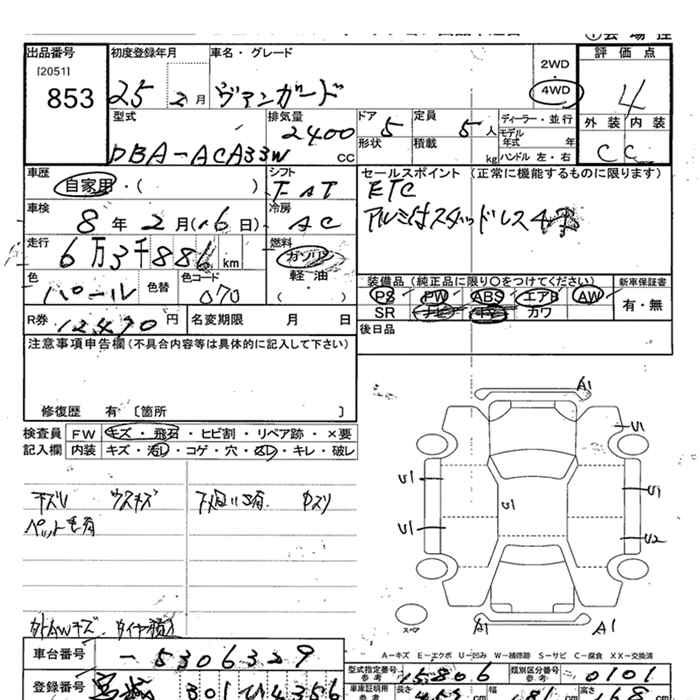 出品番号 初度登録年月 車名・グレード 2WD 評価点
[2051]
853 25 2月 ヴァンガード 4WD 4
型式 排気量 ドア 定員 ディーラー・並行 外装 内装
2400 5 5人 モデル年式 年
DBA-ACA33W CC 形状 積載 kg ハンドル 左・右 C C
車歴 シフト セールスポイント (正常に機能するものに限ります)
自家用・( ) FAT ETC
車検 冷房 アルミ付スタッドレス4本
8年2月(16日) AC
走行 燃料
6万3千886km ガソリン
色 色替 色コード 軽油 装備品 (純正品に限り○をつけてください) 新車保証書
パール 070 ( ・ ) PS PW ABS エアB AW 有・無
SR ナビ カワ
R券 12,490円 名変期限 月 日 後日品
注意事項申告欄(不具合内容等は具体的に記入して下さい)
修復歴 有 〔箇所 〕
検査員 FW キズ・飛石・ヒビ割・リペア跡・×要
記入欄 内装 キズ・汚レ・コゲ・穴・スレ・キレ・破レ
A1
U1
U1 U1
U1
U1 U2
キズU ウスキズ
ペットモ有
外AWキズ、タイヤ積込
スペア A1 A1
A-キズ E-エクボ U-凹み W-補修跡 S-サビ C-腐食 XX-交換済
車台番号 -5306329
型式指定番号 15806 類別区分番号 0101
登録番号 301 4356
車庫証明用参考 長さ cm 幅 181 cm 高さ 168 cm